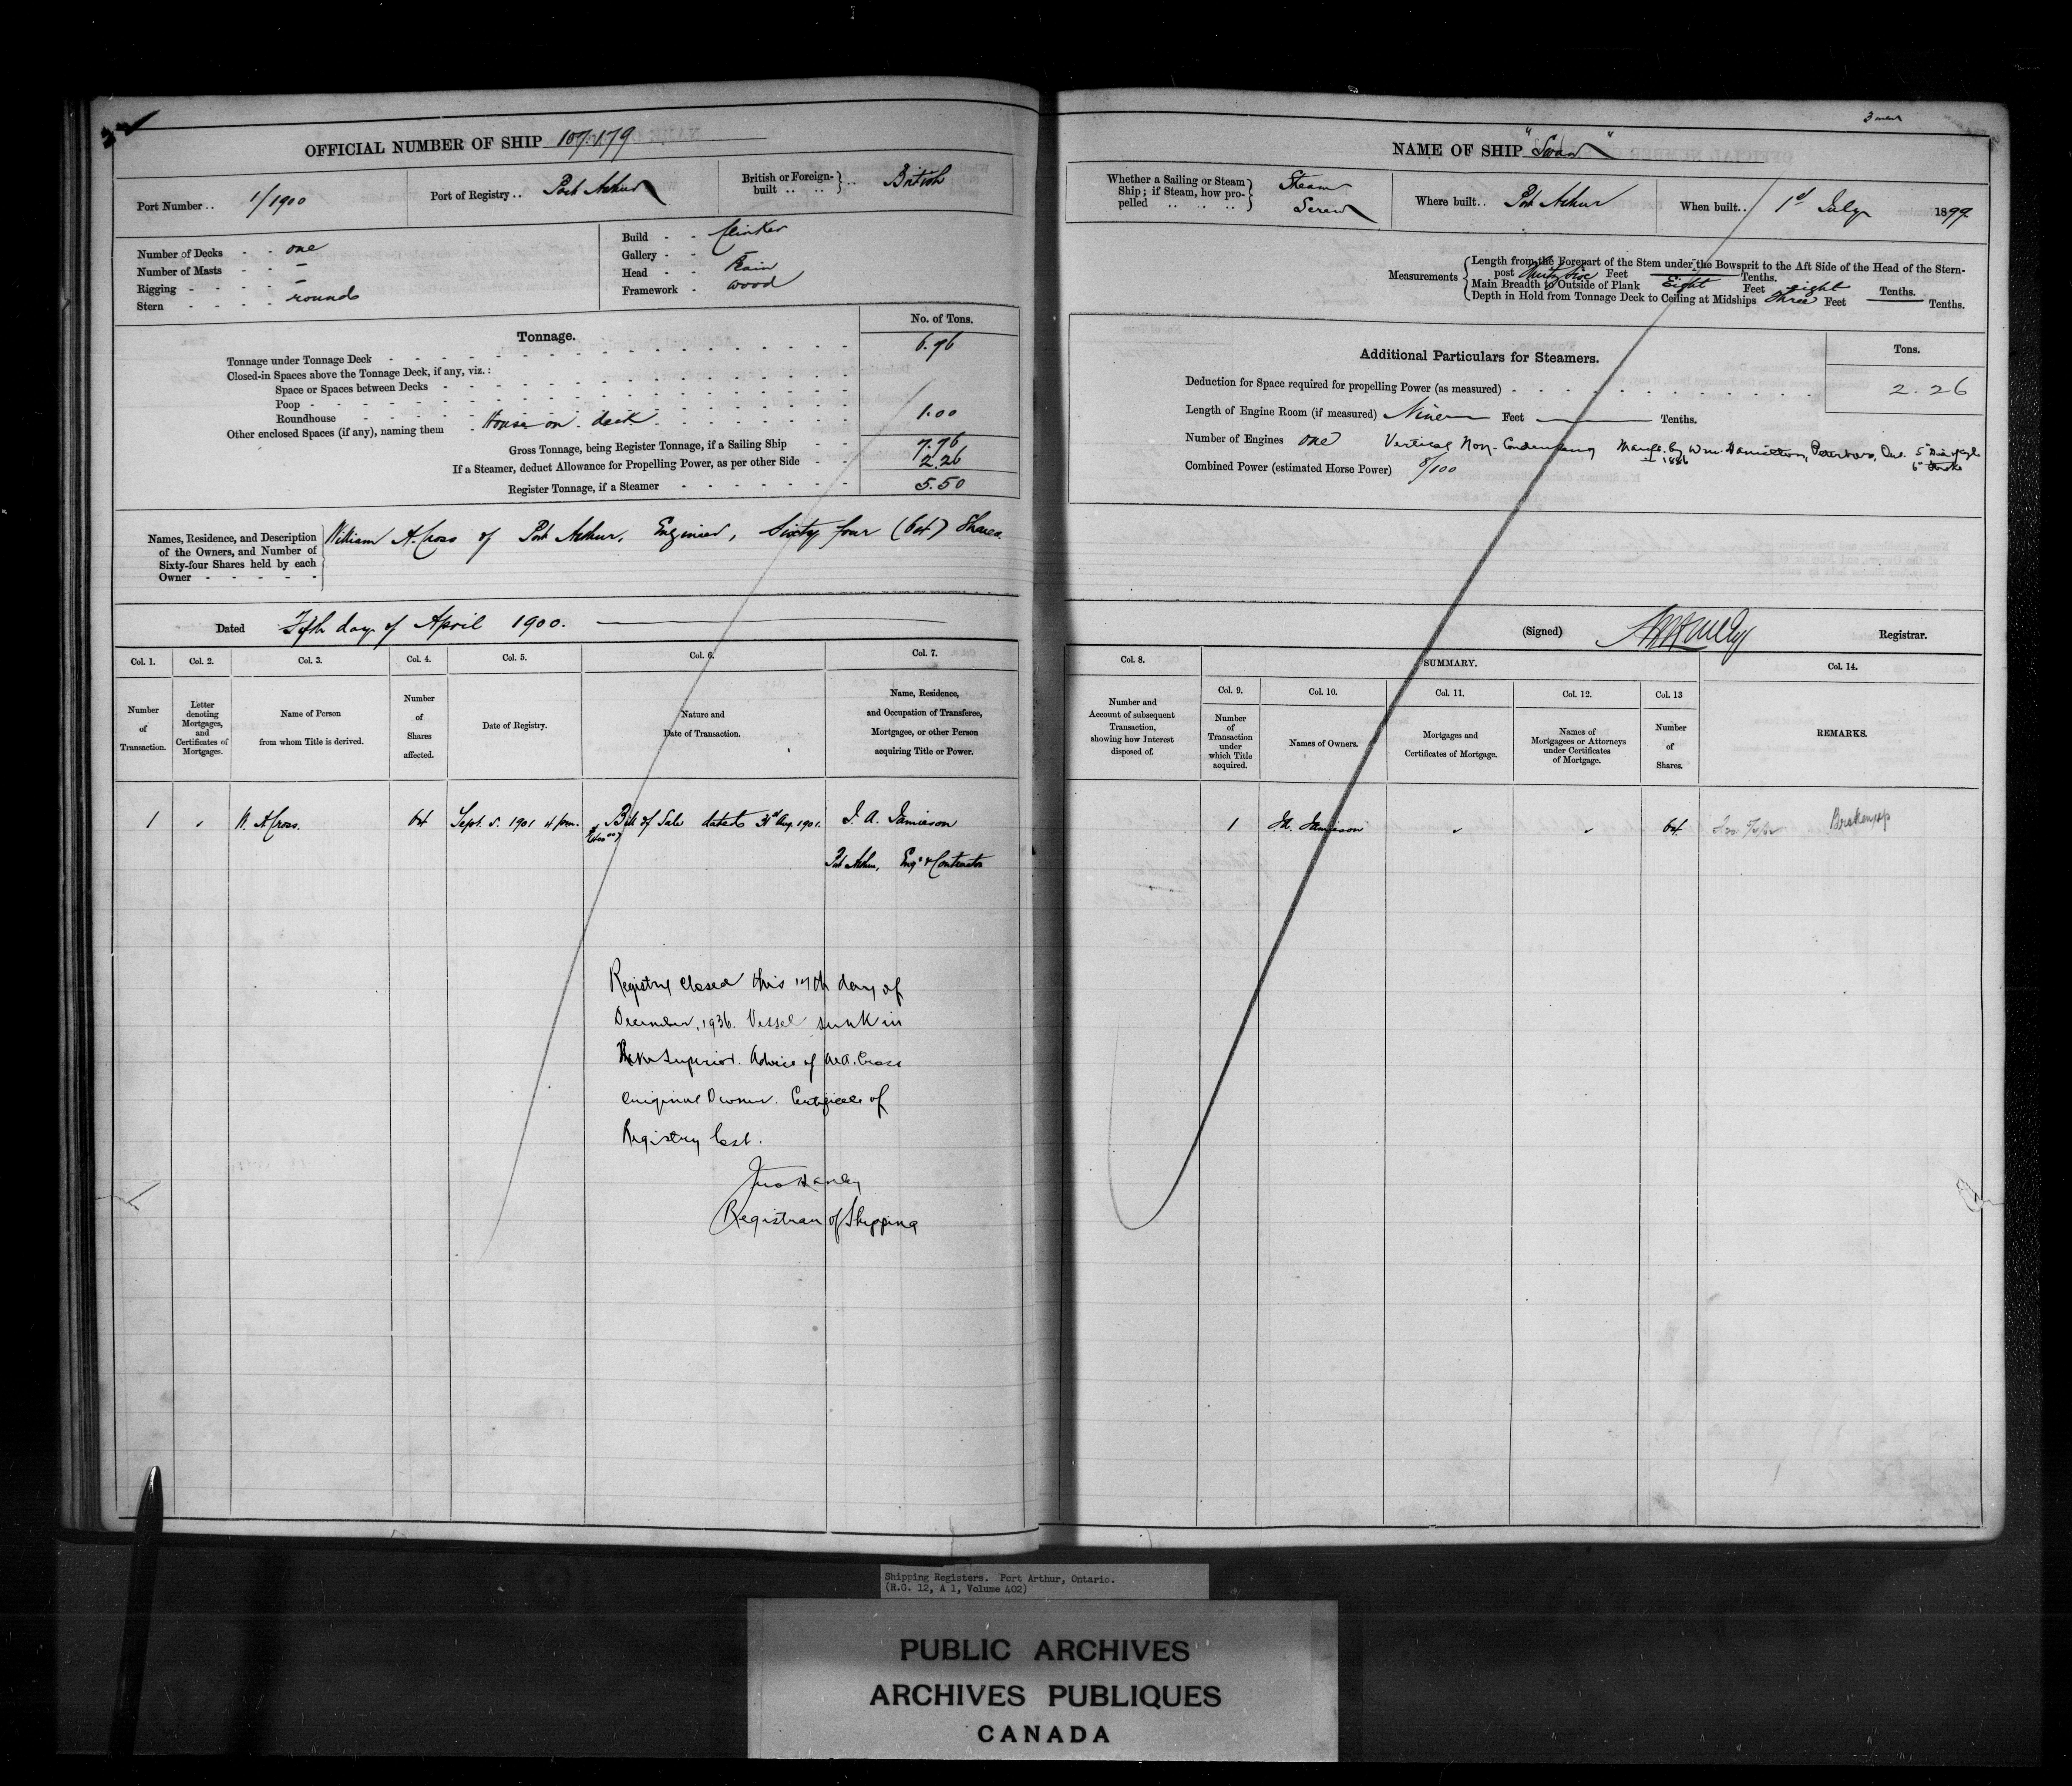 OFFICIAL NUMBER OF SHIP 107.179
Port Number .. 1/1900
Port of Registry .. Port Arthur
British or Foreign-built .. .. British
Number of Decks - - one
Number of Masts - - –
Rigging - - - - –
Stern - - - - round
Build - - Clinker
Gallery - - –
Head - -
Framework - wood
Tonnage.
No. of Tons.
Tonnage under Tonnage Deck 6.76
Closed-in Spaces above the Tonnage Deck, if any, viz.:
Space or Spaces between Decks
Poop
Roundhouse
Other enclosed Spaces (if any), naming them - House on deck 1.00
Gross Tonnage, being Register Tonnage, if a Sailing Ship 7.76
If a Steamer, deduct Allowance for Propelling Power, as per other Side 2.26
Register Tonnage, if a Steamer 5.50
Names, Residence, and Description
of the Owners, and Number of
Sixty-four Shares held by each
Owner
William A. Cross of Port Arthur, Engineer, Sixty four (64) Shares.
Dated Fifth day of April 1900.
Col. 1. Col. 2. Col. 3. Col. 4. Col. 5. Col. 6. Col. 7.
Number of Transaction.
Letter denoting Mortgages, and Certificates of Mortgages.
Name of Person from whom Title is derived.
Number of Shares affected.
Date of Registry.
Nature and Date of Transaction.
Name, Residence, and Occupation of Transferee, Mortgagee, or other Person acquiring Title or Power.
1 W. A Cross. 64 Sept. 5. 1901 4 p.m. Bill of Sale dated 31st Aug. 1901. J. A. Jamieson
Port Arthur, Engr & Contractor
Registry closed this 17th day of
December, 1936. Vessel sunk in
Lake Superior. Advice of W.A. Cross
original Owner. Certificate of
Registry lost.
Registrar of Shipping
NAME OF SHIP "Swan"
Whether a Sailing or Steam
Ship; if Steam, how pro-
pelled .. .. ..
Steam
Screw
Where built.. Port Arthur
When built.. 1st July 1899
Measurements
Length from the Forepart of the Stem under the Bowsprit to the Aft Side of the Head of the Stern-
post Feet Tenths.
Main Breadth to Outside of Plank Eight Feet eight Tenths.
Depth in Hold from Tonnage Deck to Ceiling at Midships Three Feet Tenths.
Additional Particulars for Steamers.
Tons.
Deduction for Space required for propelling Power (as measured) 2.26
Length of Engine Room (if measured) Nine Feet Tenths.
Number of Engines one Vertical Non-Condensing Manfd. by Wm. Hamilton, Peterboro, Ont. 5"
1886 6" Stroke
Combined Power (estimated Horse Power) 8/100
(Signed) Registrar.
Col. 8. SUMMARY. Col. 14.
Col. 9. Col. 10. Col. 11. Col. 12. Col. 13
Number and Account of subsequent Transaction, showing how Interest disposed of.
Number of Transaction under which Title acquired.
Names of Owners.
Mortgages and Certificates of Mortgage.
Names of Mortgagees or Attorneys under Certificates of Mortgage.
Number of Shares.
REMARKS.
1 J.A. Jamieson 64 Broken up
Shipping Registers. Port Arthur, Ontario.
(R.G. 12, A 1, Volume 402)
PUBLIC ARCHIVES
ARCHIVES PUBLIQUES
CANADA